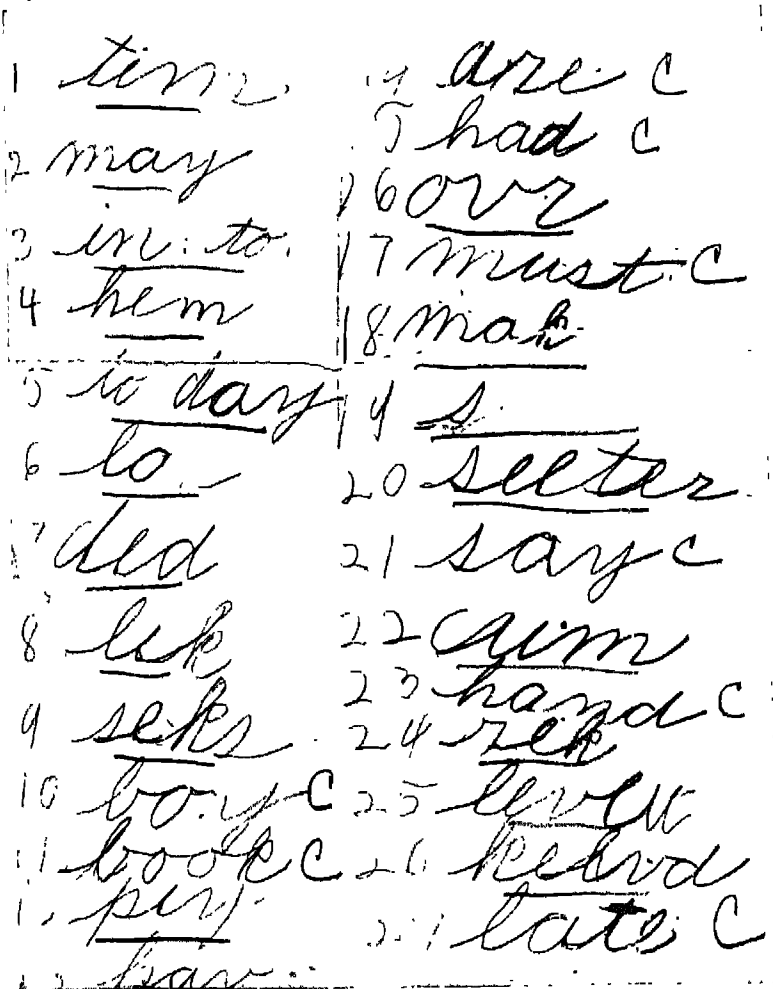 1 tim
2 may
3 in to
4 hem
5 to day
6 lo
7 ded
8 lik
9 seks
10 boy C
11 book C
12 pery
13 hav
14 are C
15 had C
16 ovr
17 must C
18 mak
19 s
20 seeter
21 say C
22 crim
23 hand C
24 rek
25
26
27 late C